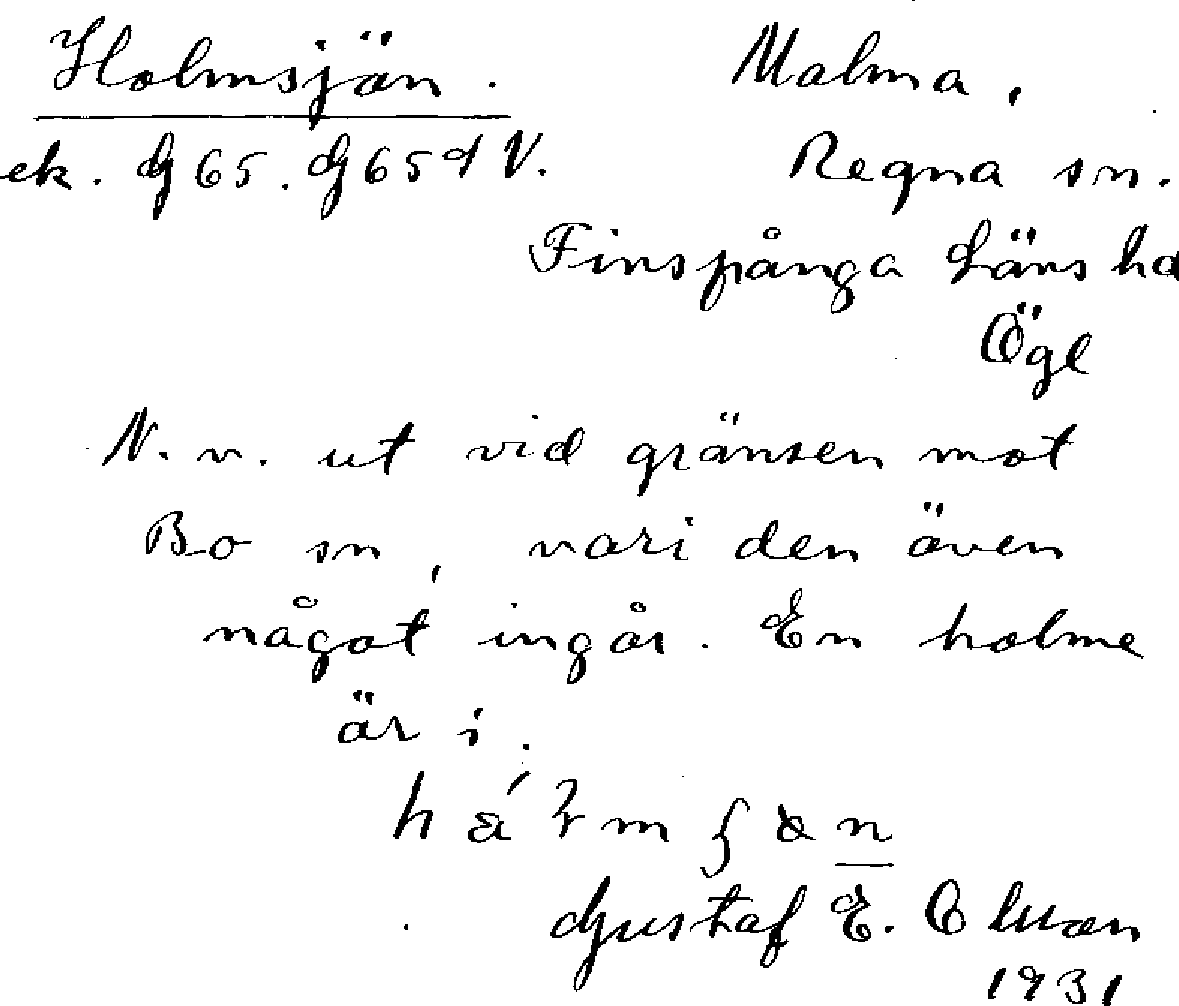 Holmsjön. Malma,
ek. G65. G65dV. Regna sn.
Finspånga Läns hd
Ögl
N. v. ut vid gränsen mot
Bo sn, vari den även
något ingår. En holme
är i.
Gustaf E.
1931